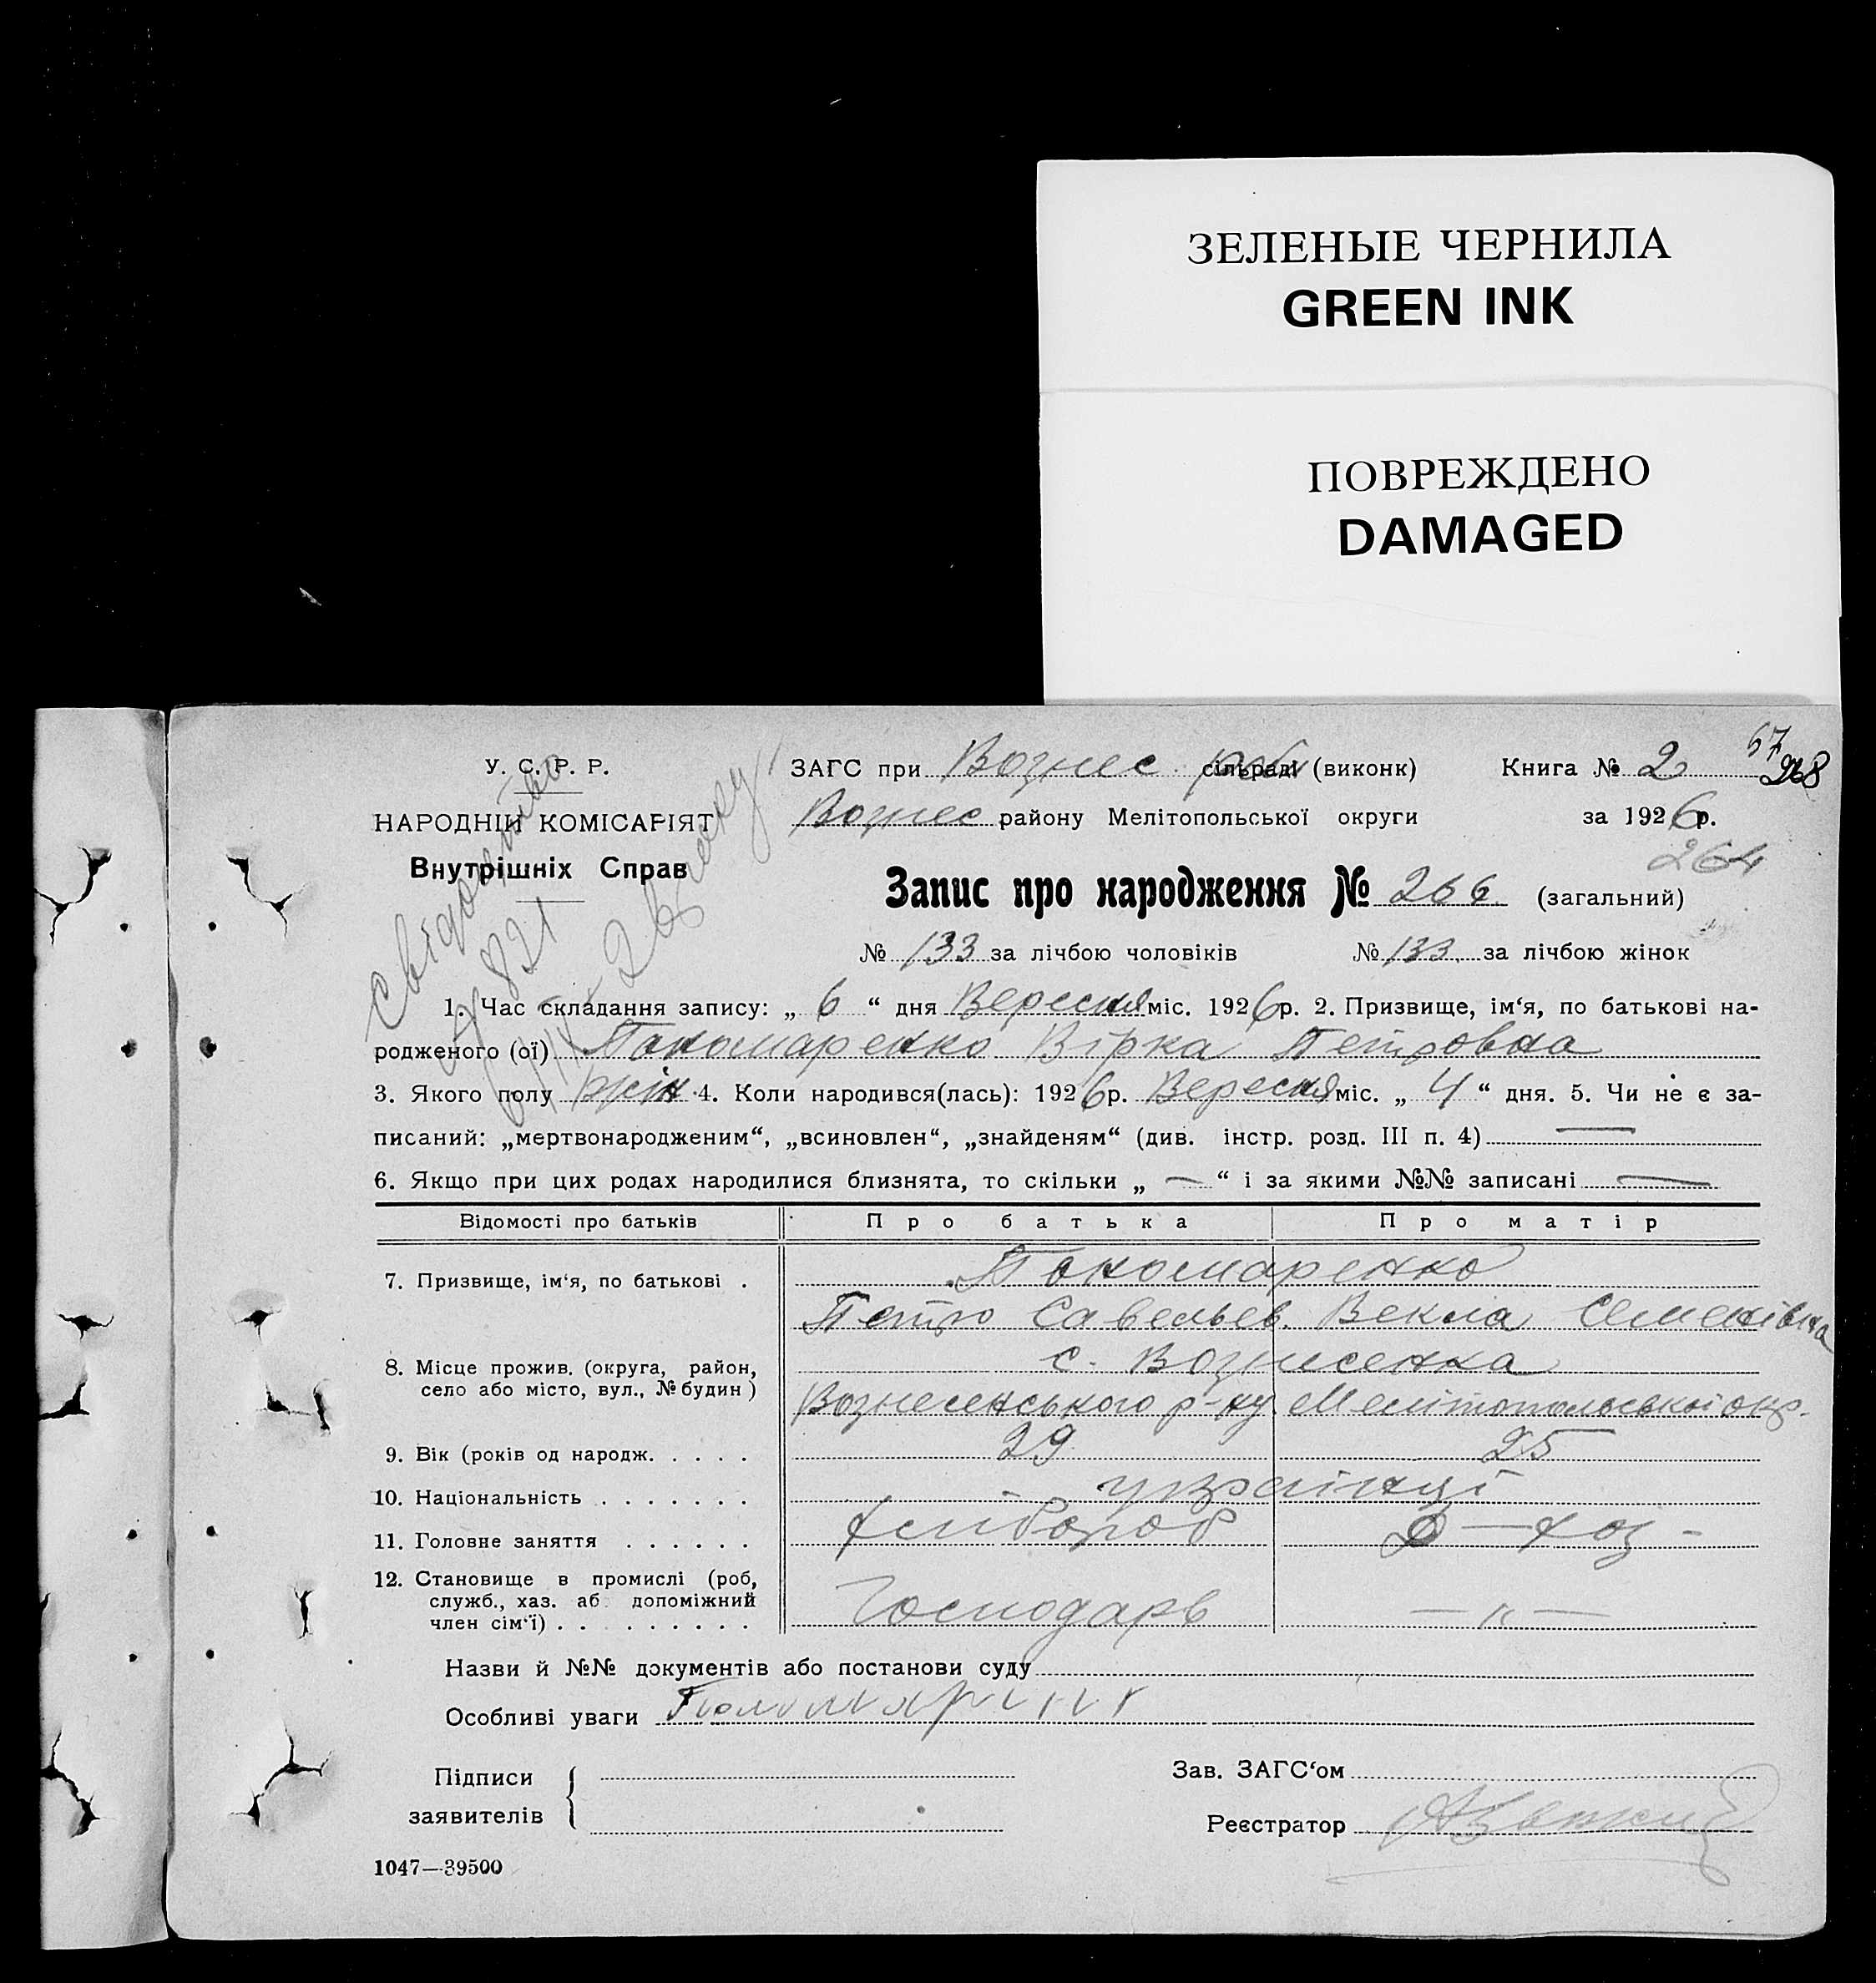 ЗЕЛЕНЫЕ ЧЕРНИЛА
GREEN INK
ПОВРЕЖДЕНО
DAMAGED
У. С. Р. Р.
НАРОДНІЙ КОМІСАРІЯТ
Внутрішніх Справ
Свідоцтво
821
ЗАГС при Вознес сільраді (виконк) Книга № 2
67
268
Вознес району Мелітопольської округи за 1926 р.
264
Запис про народження № 266 (загальний)
№ 133 за лічбою чоловіків № 133 за лічбою жінок
1. Час складання запису: „ 6 “ дня Вересня міс. 1926 р. 2. Призвище, ім‘я, по батькові на-
родженого (ої) Пономаренко Вірка Петровна
3. Якого полу жін. 4. Коли народився(лась): 1926 р. Вересня міс. „ 4 “ дня. 5. Чи не є за-
писаний: „мертвонародженим“, „всиновлен“, „знайденям“ (див. інстр. розд. III п. 4) —
6. Якщо при цих родах народилися близнята, то скільки „ — “ і за якими №№ записані —
Відомості про батьків Про батька Про матір
7. Призвище, ім‘я, по батькові . Пономаренко
Петро Савельев. Векла Семенівна
8. Місце прожив. (округа, район, с. Вознесенка
село або місто, вул., № будин) Вознесенського р-ну Мелітопольської окр.
9. Вік (років од народж. . . . . 29 25
10. Національність . . . . . . . українці
11. Головне заняття . . . . . . хлібороб Д — хоз -
12. Становище в промислі (роб,
служб., хаз. аб допоміжний
член сім‘ї) . . . . . . . . . Господарь — „ —
Назви й №№ документів або постанови суду
Особливі уваги
Підписи
заявителів
Зав. ЗАГС‘ом
Реєстратор
1047—39500